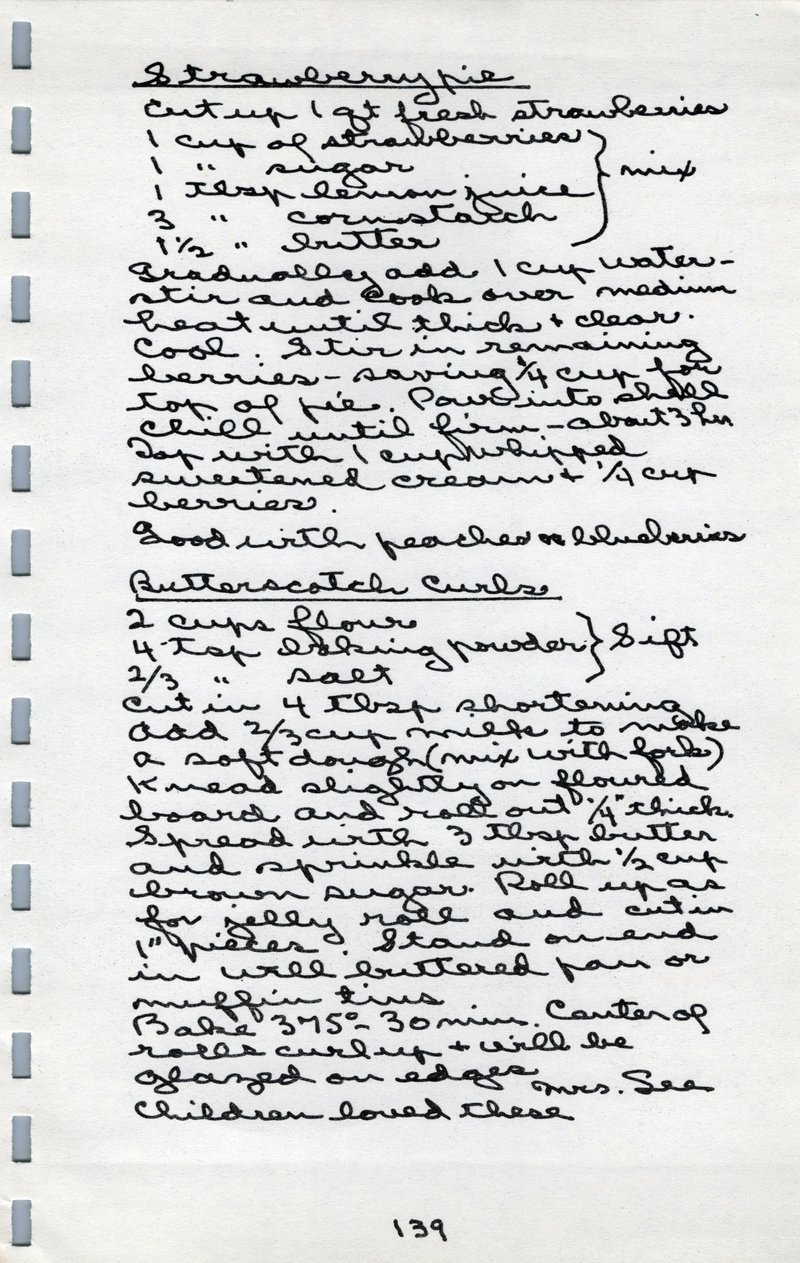 Strawberry pie
Cut up 1 qt fresh strawberries
1 cup of strawberries
1 " sugar
1 tbsp lemon juice } mix
3 " cornstarch
1 1/2 " butter
Gradually add 1 cup water -
stir and cook over medium
heat until thick + clear.
Cool. Stir in remaining
berries - saving 1/4 cup for
top of pie. Pour into shell
Chill until firm - about 3 hrs
Top with 1 cup whipped
sweetened cream + 1/4 cup
berries.
Good with peaches or blueberries
Butterscotch Curls
2 cups flour
4 tsp baking powder } Sift
2/3 " salt
Cut in 4 tbsp shortening
Add 2/3 cup milk to make
a soft dough (mix with fork)
Knead slightly on floured
board and roll out 1/4" thick.
Spread with 3 tbsp butter
and sprinkle with 1/2 cup
brown sugar. Roll up as
for jelly roll and cut in
1" pieces. Stand on end
in well buttered pan or
muffin tins
Bake 375° - 30 min. Center of
rolls curl up + will be
glazed on edges
Mrs. See
Children loved these
139